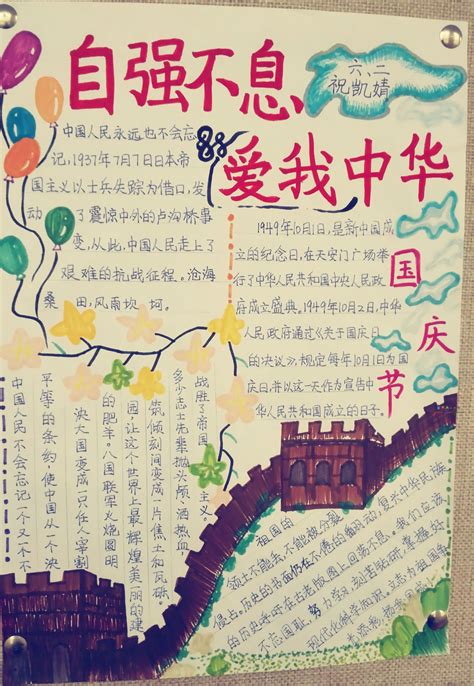 自强不息
六、二
祝凯婧
爱我中华
中国人民永远也不会忘
记,1937年7月7日日本帝
国主义以士兵失踪为借口,发
动了震惊中外的卢沟桥事
变,从此,中国人民走上了
艰难的抗战征程。沧海
桑田,风雨坎坷。
1949年10月1日,是新中国成
立的纪念日,在天安门广场举
行了中华人民共和国中央人民政
府成立盛典。1949年10月2日,中华
人民政府通过《关于国庆日
的决议》,规定每年10月1日为国
庆日,并以这一天作为宣告中
华人民共和国成立的日子。
国庆节
中国人民不会忘记一个又一个不
平等的条约,使中国从一个泱
泱大国变成一只任人宰割
的肥羊。八国联军火烧圆明
园,让这个世界上最辉煌美丽的建
筑倾刻间变成一片焦土和瓦砾。
多少志士先辈抛头颅,洒热血
战胜了帝国主义。
祖国的
领土不能丢,不能被分裂
侵占,历史的书面仍在不倦的翻动,复兴中华民族
的历史呼吁在古老版图上回荡不息。我们应该
不忘国耻,努力学习,刻苦钻研,掌握好
现代化科学知识。立志为祖国